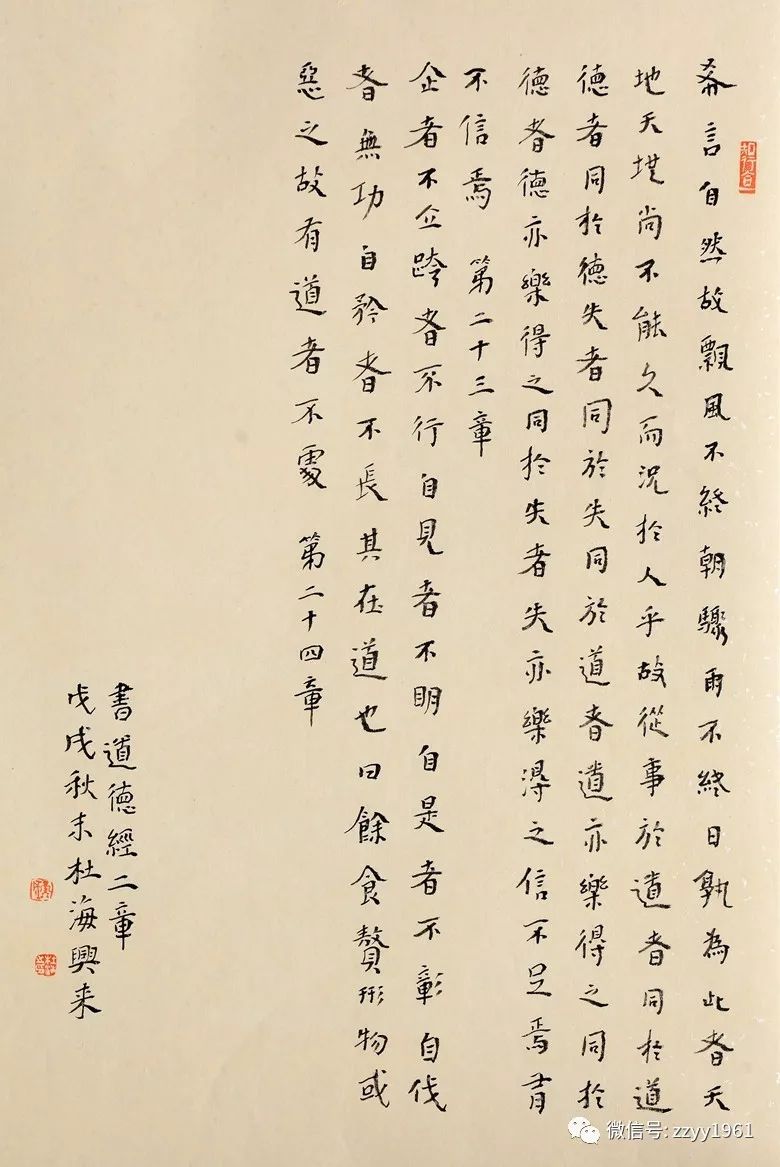 知行合一
希言自然故飄風不終朝驟雨不終日孰為此者天
地天地尚不能久而況於人乎故從事於道者同於道
德者同於德失者同於失同於道者道亦樂得之同於
德者德亦樂得之同於失者失亦樂得之信不足焉有
不信焉 第二十三章
企者不立跨者不行自見者不明自是者不彰自伐
者無功自矜者不長其在道也曰餘食贅形物或
惡之故有道者不處 第二十四章
書道德經二章
戊戌秋末杜海興来
微信号: zzyy1961